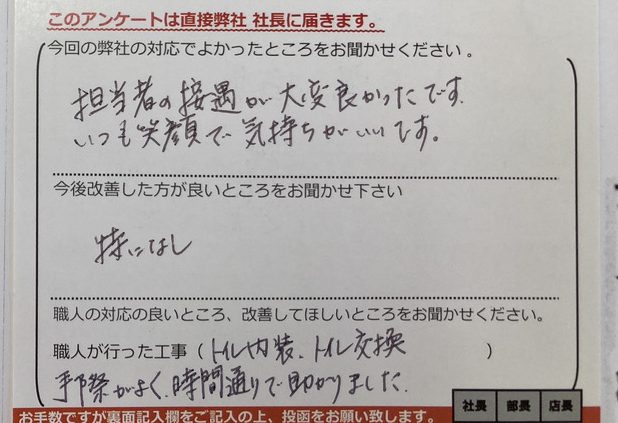 このアンケートは直接弊社 社長に届きます。
今回の弊社の対応でよかったところをお聞かせください。
担当者の接遇が大変良かったです.
いつも笑顔で気持ちがいいです。
今後改善した方が良いところをお聞かせ下さい
特になし
職人の対応の良いところ、改善してほしいところをお聞かせください。
職人が行った工事(トイレ内装、トイレ交換)
手際がよく、時間通りで助かりました.
社長 部長 店長
お手数ですが裏面記入欄をご記入の上、投函をお願い致します。